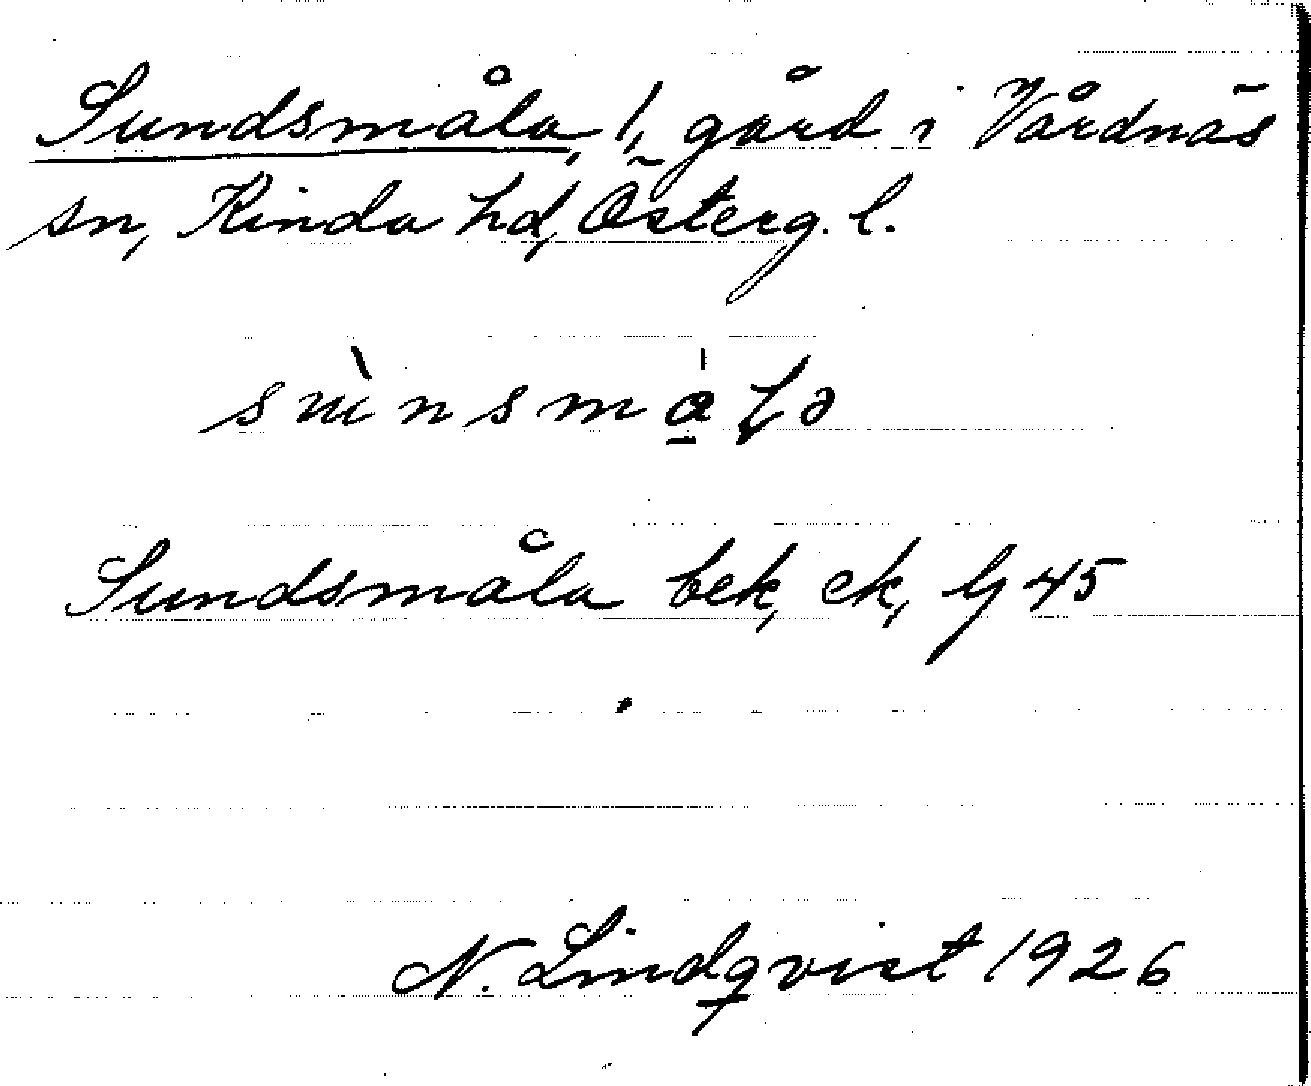 Sundsmåla, 1, gård i Vårdnäs
sn, Kinda hd, Österg. l.
Sundsmåla bek, ek, Gj 45
N. Lindqvist 1926